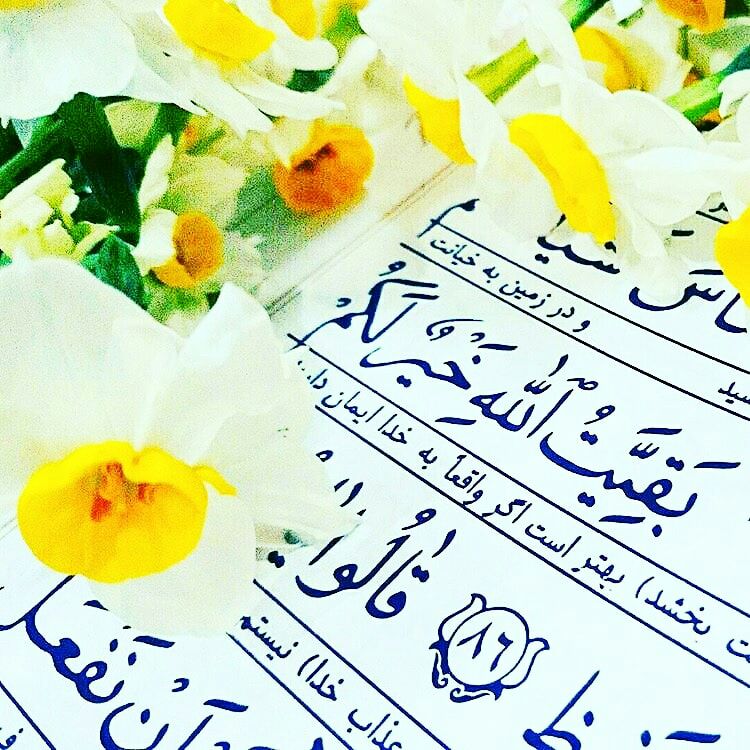 و در زمین به خیانت
بَقِیَّتُ اللّٰهِ خَیْرٌ لَکُمْ
بخشد) بهتر است اگر واقعاً به خدا ایمان
۸۶ قالُوا
عذاب خدا) نیستم
أَنْ نَفْعَلَ